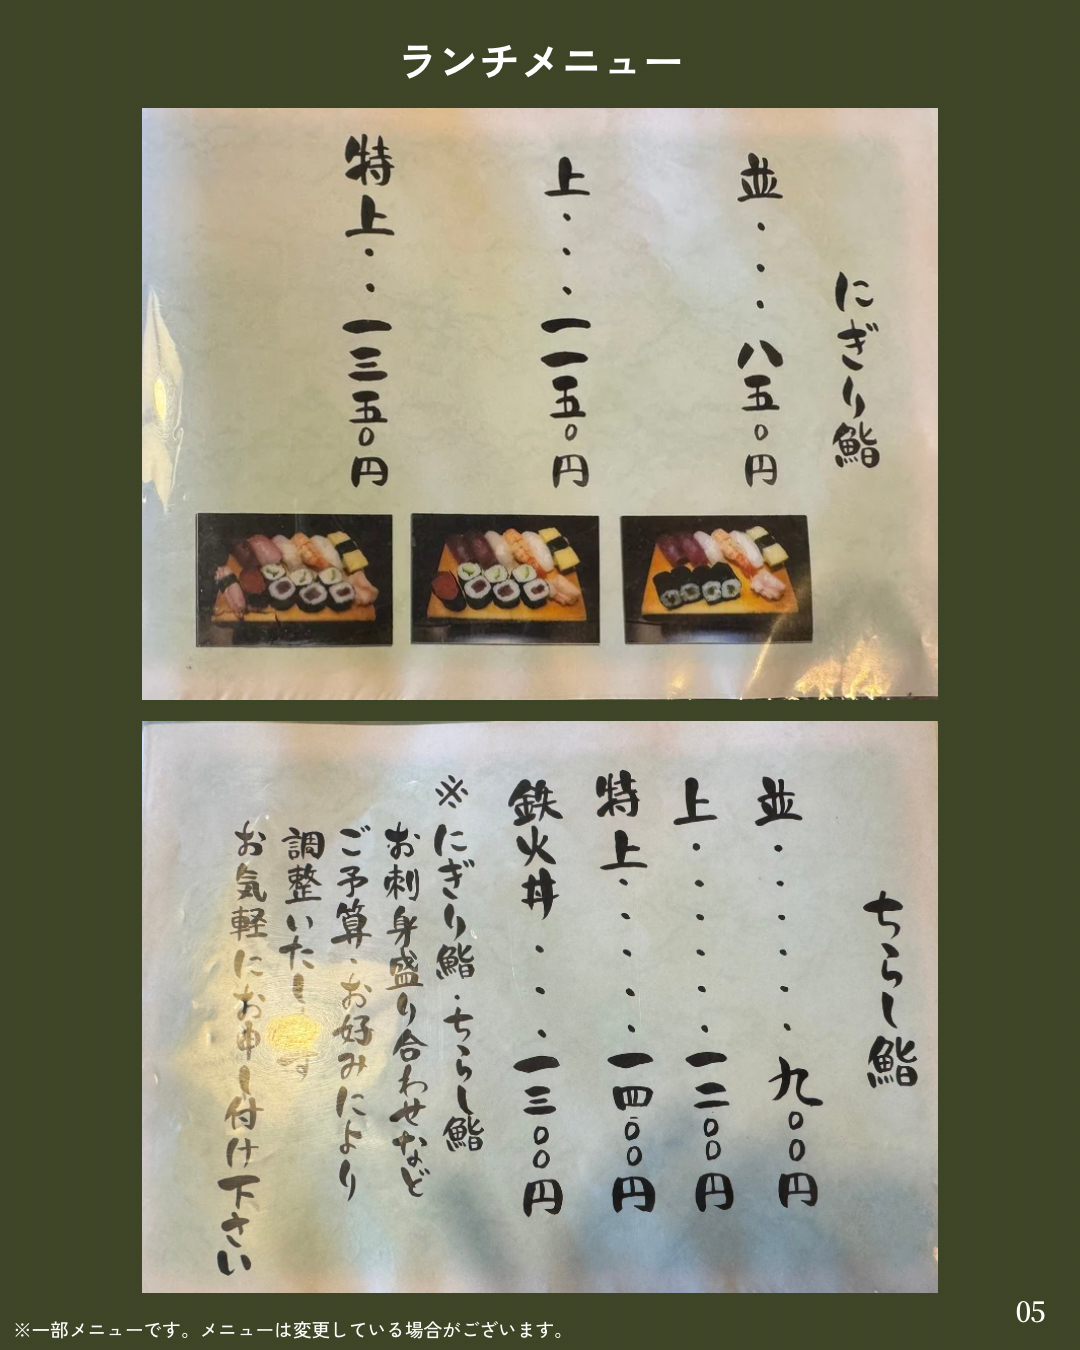 ランチメニュー
にぎり鮨
並・・・八五〇円
上・・・一一五〇円
特上・・一三五〇円
ちらし鮨
並・・・・・・九〇〇円
上・・・・・・一二〇〇円
特上・・・・・一四〇〇円
鉄火丼・・・一三〇〇円
※にぎり鮨・ちらし鮨
お刺身盛り合わせなど
ご予算・お好みにより
調整いたします
お気軽にお申し付け下さい
※一部メニューです。メニューは変更している場合がございます。
05